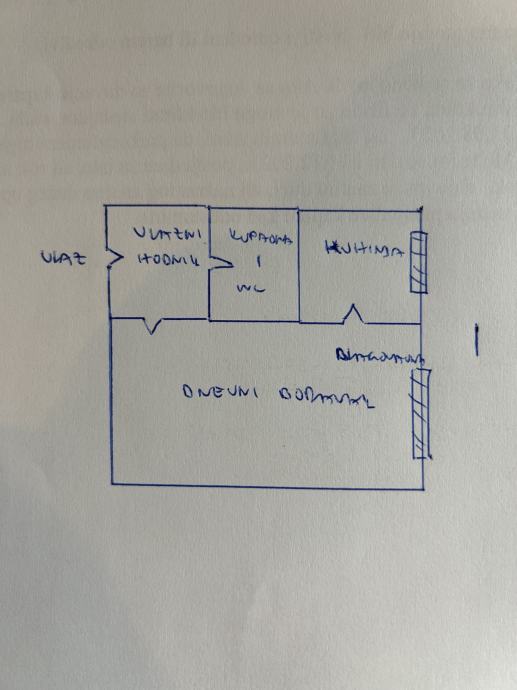 ULAZ
ULAZNI
HODNIK
KUPAONA
I
WC
KUHINJA
BLAGOVAONA
DNEVNI BORAVAK